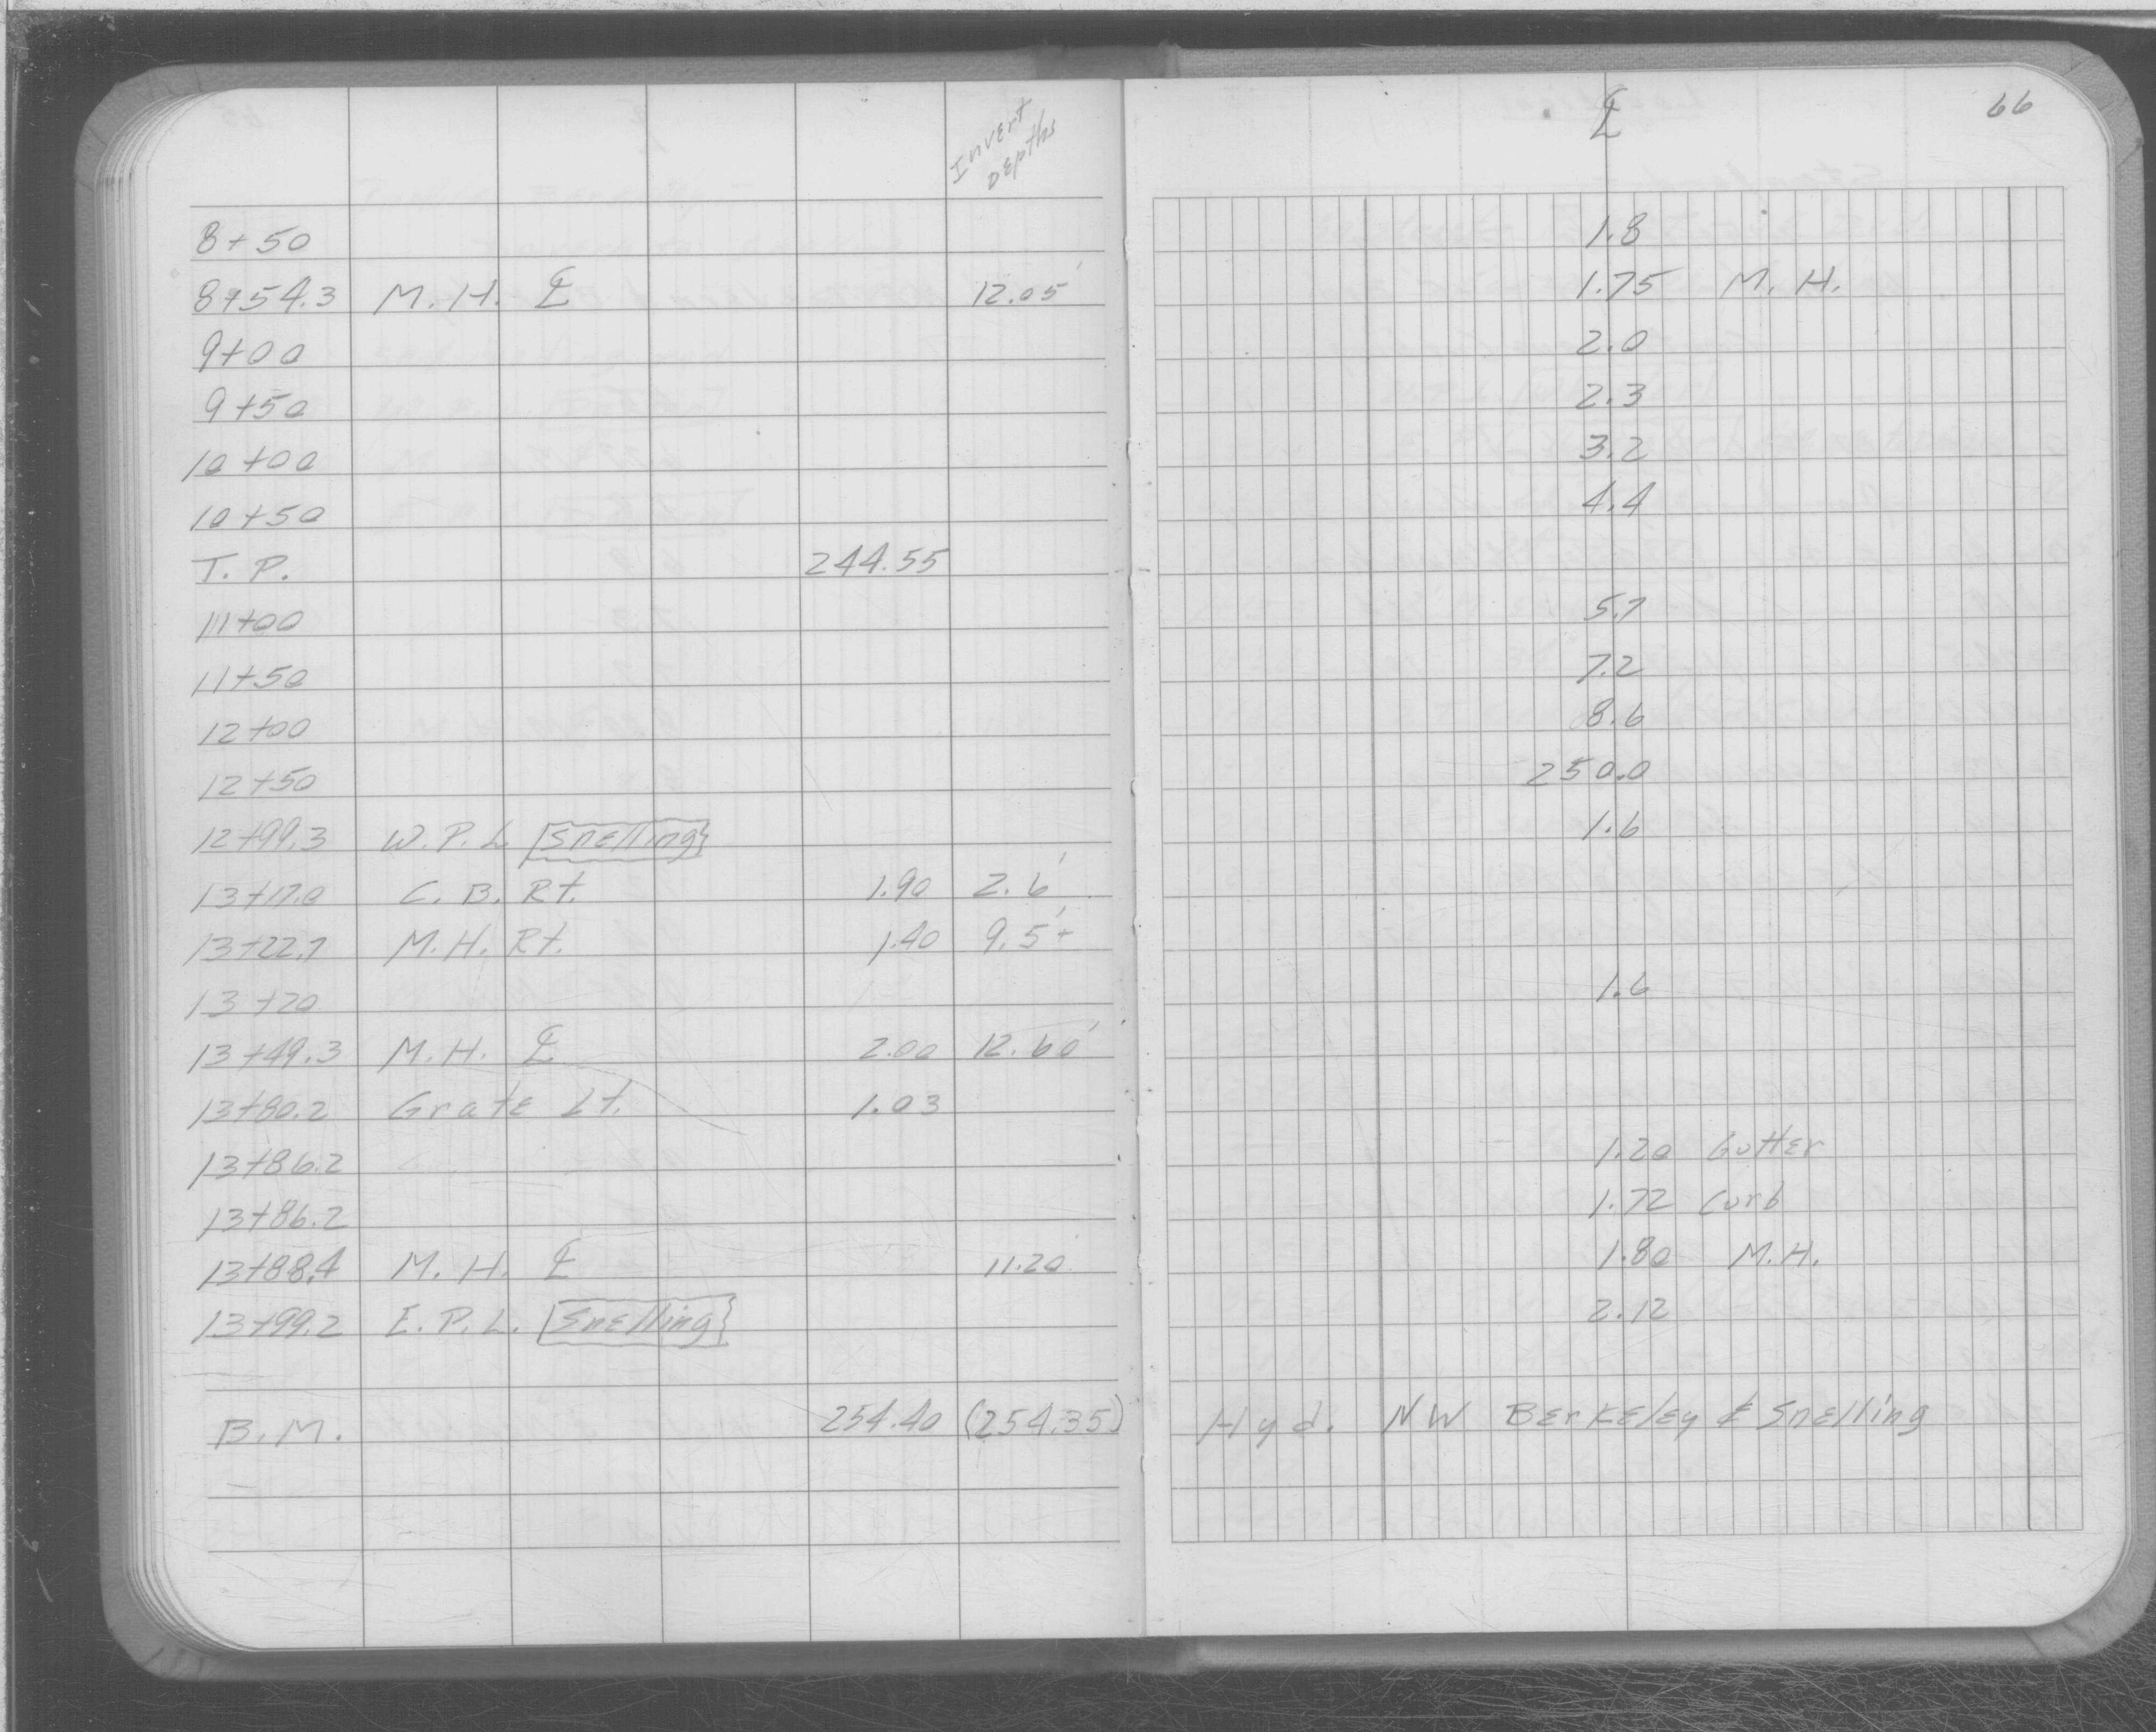 Invert Depths ℄ 66
8+50 1.8
8+54.3 M.H. ℄ 12.05' 1.75 M.H.
9+00 2.0
9+50 2.3
10+00 3.2
10+50 4.4
T.P. 244.55
11+00 5.7
11+50 7.2
12+00 8.6
12+50 250.0
12+99.3 W.P.L Snelling 1.6
13+17.0 C.B. Rt. 1.90 2.6'
13+22.7 M.H. Rt. 1.40 9.5'+
13+20 1.6
13+49.3 M.H. ℄ 2.00 12.60'
13+80.2 Grate Lt. 1.03
13+86.2 1.20 Gutter
13+86.2 1.72 Curb
13+88.4 M.H. ℄ 11.20 1.80 M.H.
13+99.2 E.P.L. Snelling 2.12
B.M. 254.40 (254.35) Hyd. NW Berkeley & Snelling